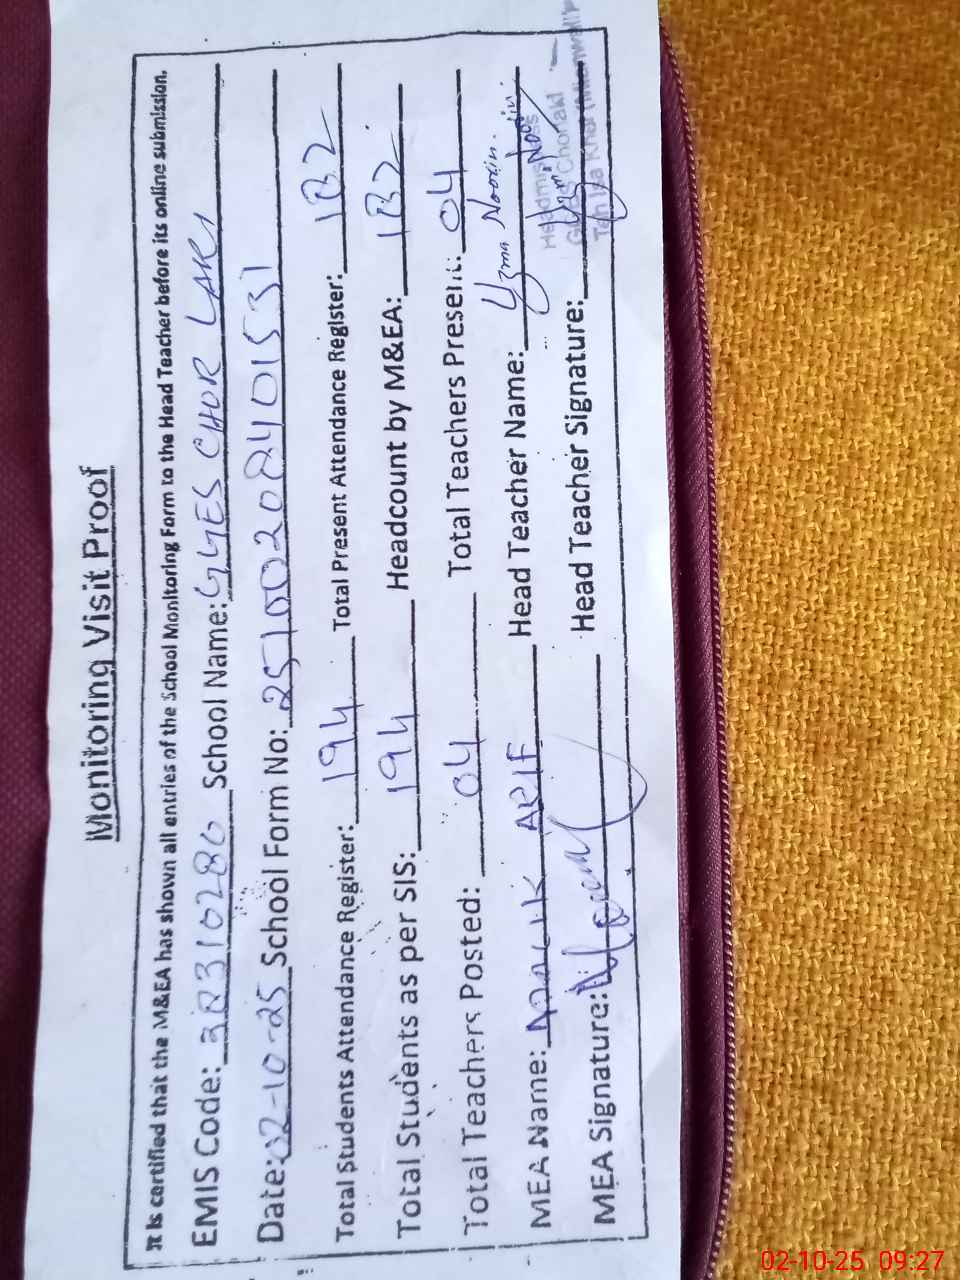 Monitoring Visit Proof
It is certified that the M&EA has shown all entries of the School Monitoring Form to the Head Teacher before its online submission.
EMIS Code: 38310286 School Name: GGES CHOR LAKI
Date: 02-10-25 School Form No: 25100208401531
Total Students Attendance Register: 194 Total Present Attendance Register: 182
Total Students as per SIS: 194 Headcount by M&EA: 182
Total Teachers Posted: 04 Total Teachers Present: 04
MEA Name: MALIK ARIF Head Teacher Name: Uzma Noorin
MEA Signature: Head Teacher Signature: Uzma Noorin
Headmistress
02-10-25 09:27